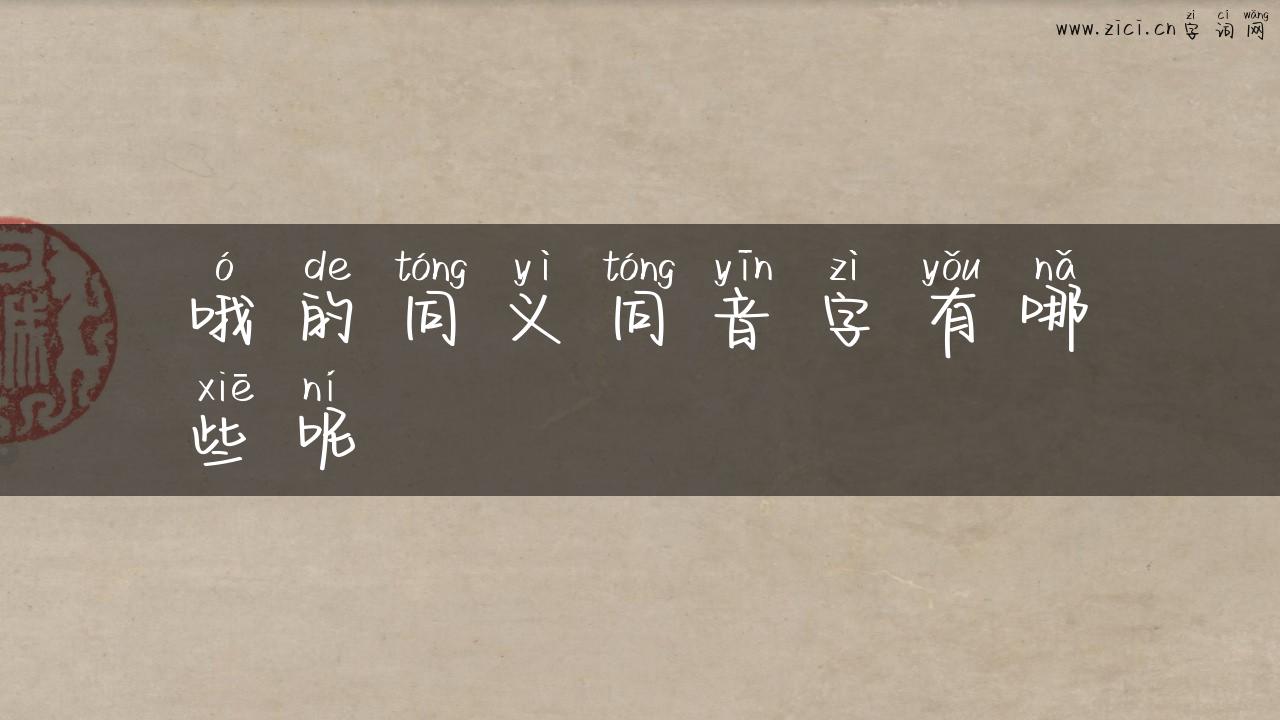 zì cí wǎng
www.zici.cn 字 词 网
ó de tóng yì tóng yīn zì yǒu nǎ
哦 的 同 义 同 音 字 有 哪
xiē ní
些 呢